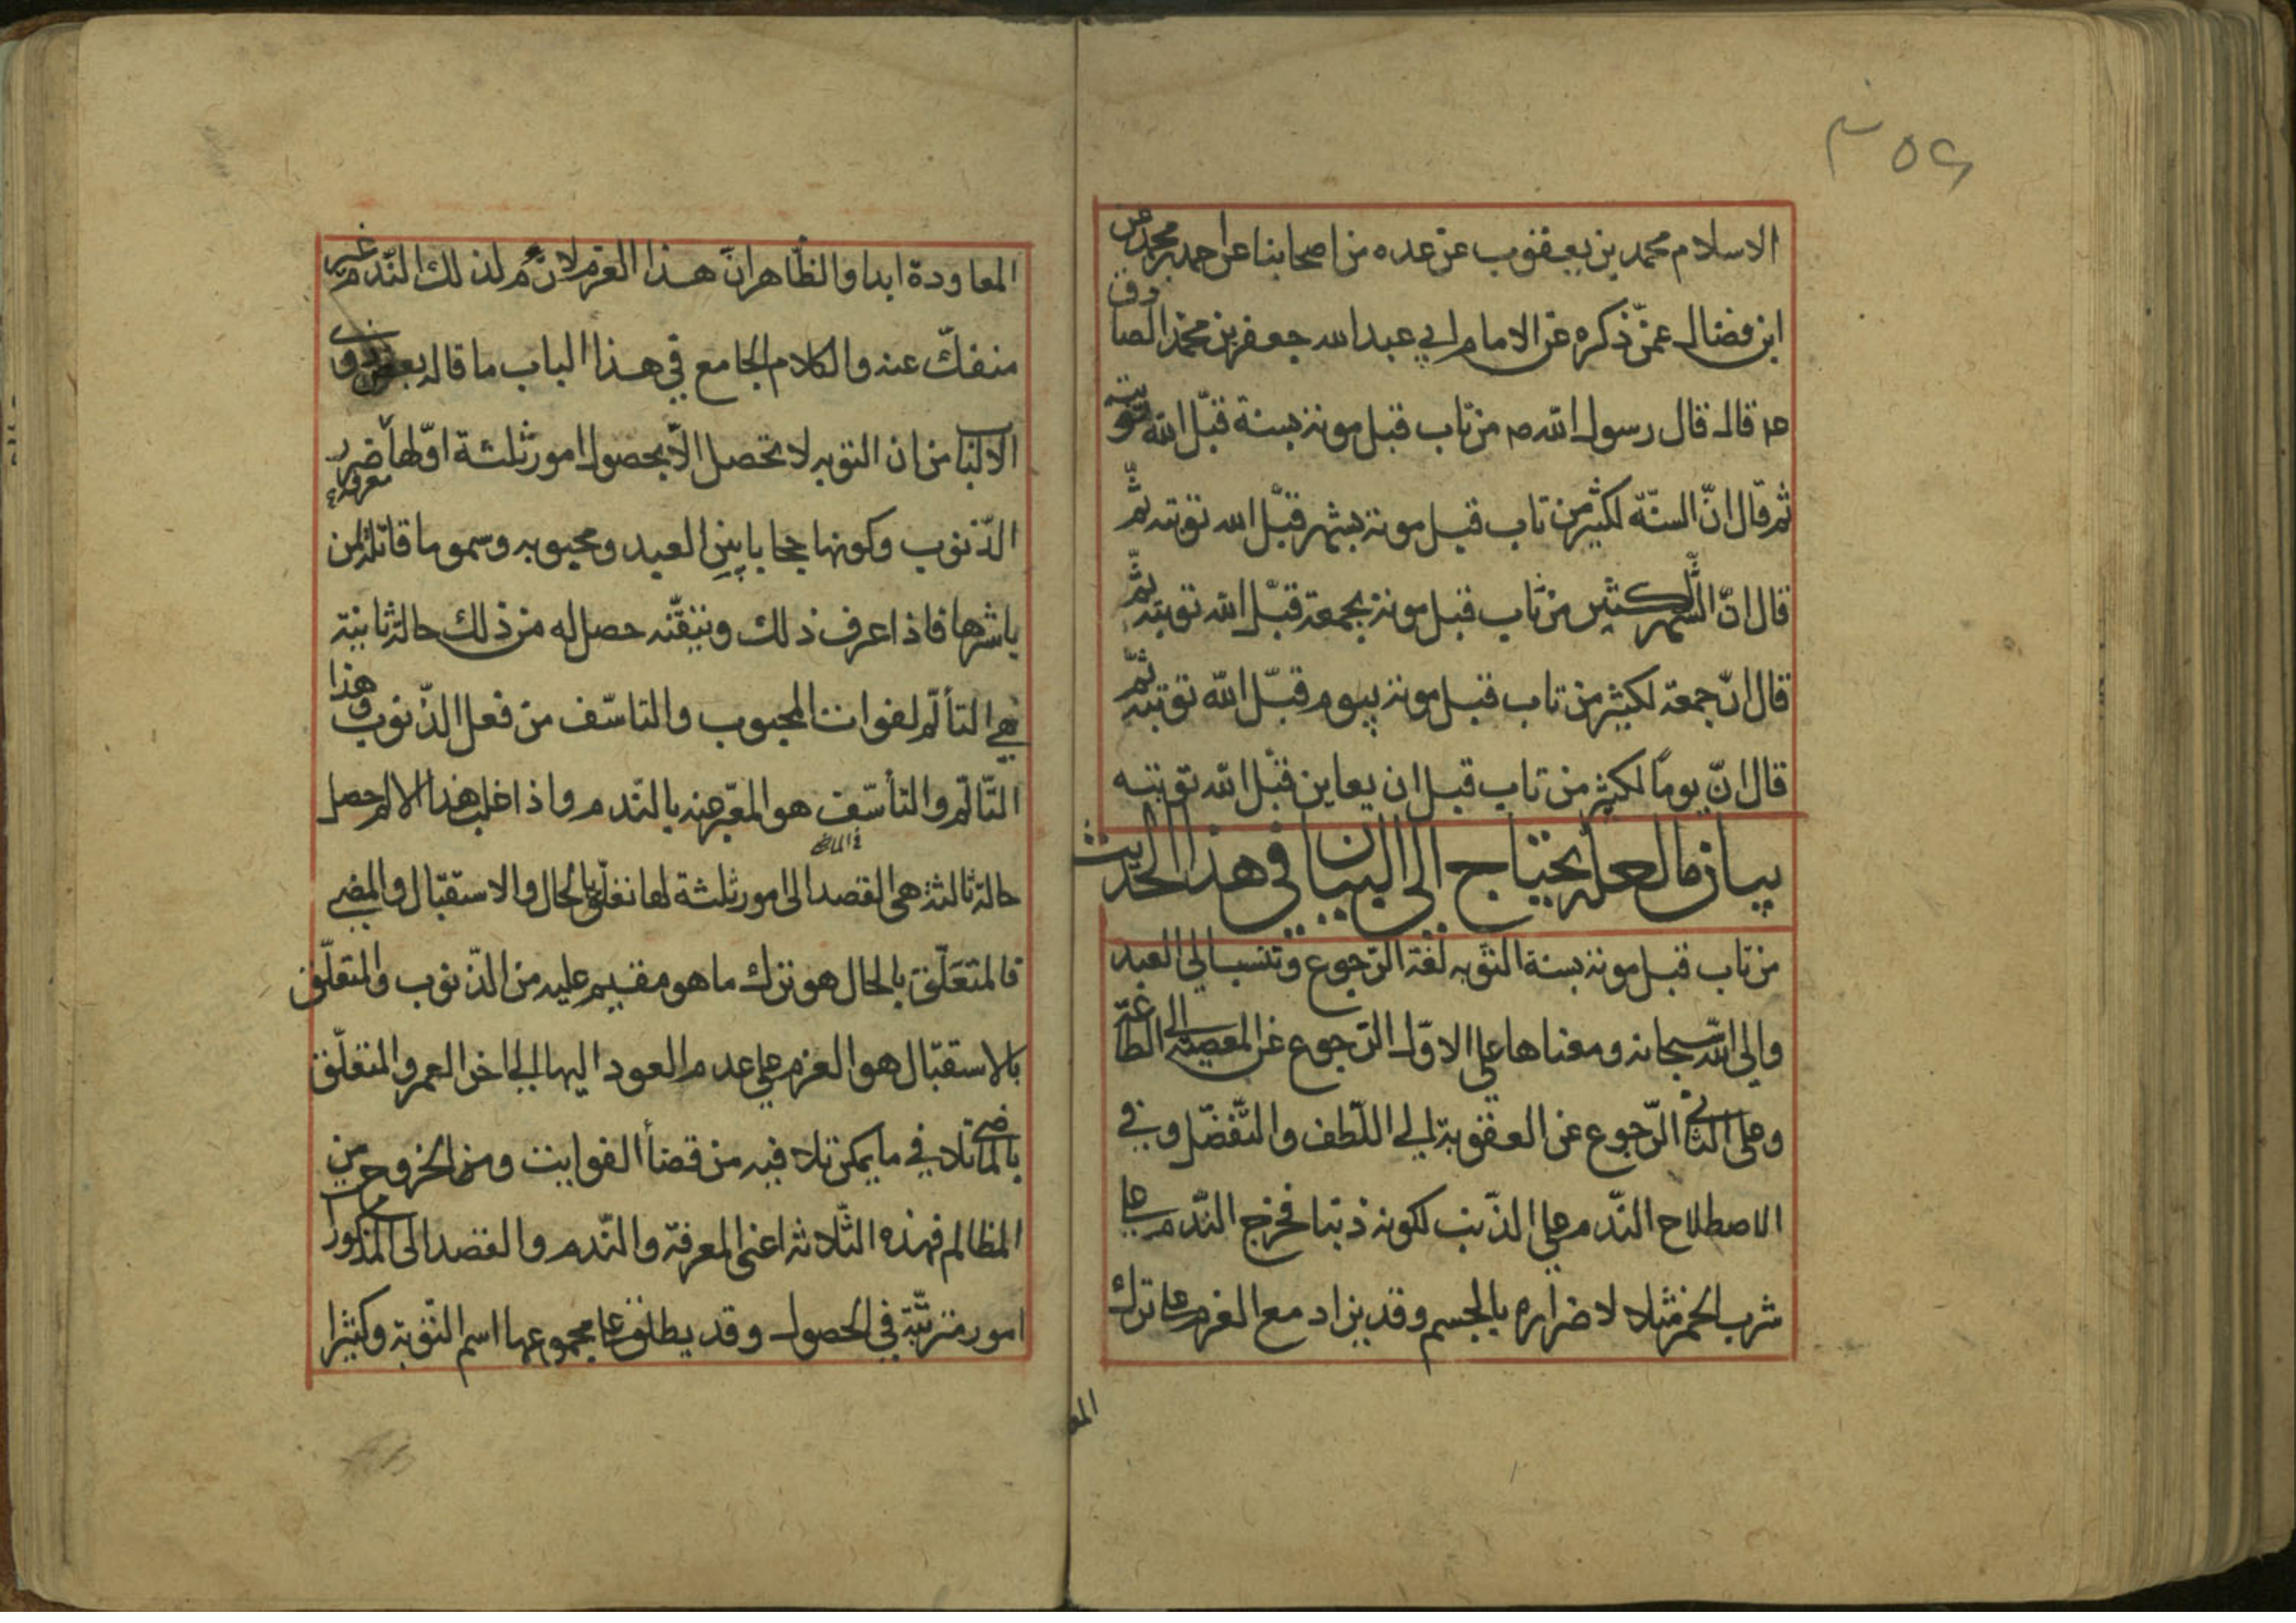 ٣٥٤
الاسلام محمد بن يعقوب عن عده من اصحابنا عن احمد بن محمد عن
ابن فضال عمّن ذكره عن الامام ابي عبد الله جعفر بن محمد الصادق
ع۴ قال قال رسول الله ص من تاب قبل موته بسنة قبّل الله توبته
ثم قال انّ السنّة لكثير من تاب قبل موته بشهر قبّل الله توبته ثمّ
قال انّ الشّهر لكثير من تاب قبل موته بجمعة قبّل الله توبته ثمّ
قال انّ جمعة لكثير من تاب قبل موته بيوم قبّل الله توبته ثمّ
قال انّ يومًا لكثير من تاب قبل ان يعاين قبّل الله توبته
بيان ما لعله يحتاج الى البيان في هذا الحديث
من تاب قبل موته بسنة التوبه لغة الرّجوع وتنسب الى العبد
والى الله سبحانه ومعناها على الاوّل الرّجوع عن المعصية الى الطاعة
وعلى الثانى الرّجوع عن العقوبة الى اللّطف والتّفضّل وفي
الاصطلاح النّدم على الذّنب لكونه ذنبا فخرج النّدم على
شرب الخمر مثلا لاضراره بالجسم وقد يزاد مع العزم على ترك
المع
المعاودة ابدا والظّاهر انّ هذا العزم لازم لذلك النّدم غير
منفكّ عنه والكلام الجامع في هذا الباب ما قاله بعض ذوى
الالباب من ان التوبه لا تحصل الّا بحصول امور ثلثة اوّلها معرفة ضرر
الذّنوب وكونها حجابا بين العبد ومحبوبه وسموما قاتلة لمن
باشرها فاذا عرف ذلك وتيقّنه حصل له من ذلك حالة ثانية
هي التألّم لفوات المحبوب والتاسّف من فعل الذّنوب وهذا
التّالّم والتأسّف هو المعّبر عنه بالنّدم واذا غلب هذا الالم حصل
حالة ثالثة هى القصد الى امور ثلثة لها تعلّق بالحال والاستقبال والمضى
فالمتعَلّق بالحال هو ترك ما هو مقيم عليه من الذّنوب والمتعلّق
بالاستقبال هو العزم على عدم العود اليها الى اخر العمر والمتعلّق
بالماضى تلافي ما يمكن تلافيه من قضأ الفوايت والخروج من
المظالم فهذه الثّلاثه اعنى المعرفة والنّدم والقصد الى المذكورا
امور مترتّبة في الحصول وقد يطلق على مجموعها اسم التّوبة وكثيرا